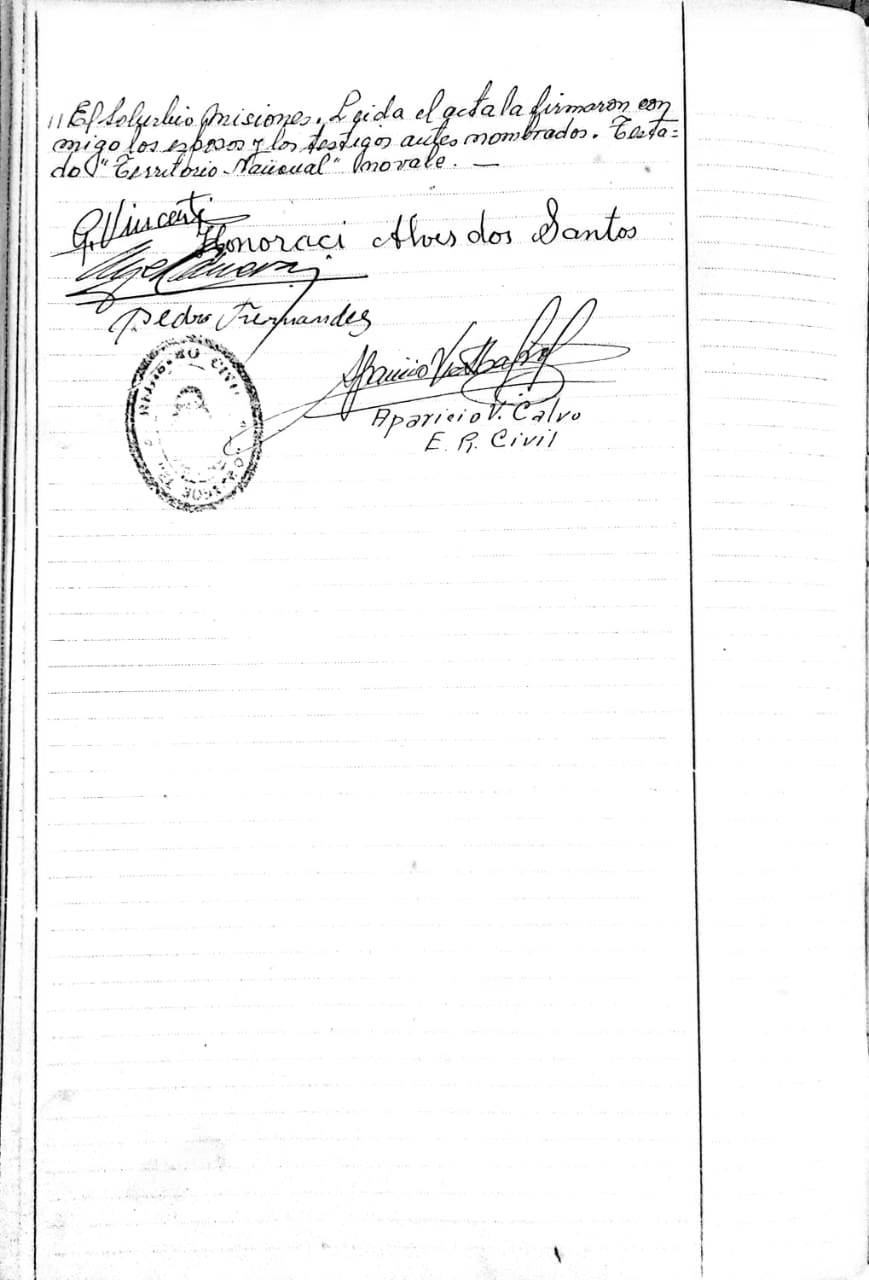 // El Soberbio Misiones. Leida el acta la firmaron con
migo los esposos y los testigos antes nombrados. Testa=
do "Territorio Nacional" no vale. —
G. Vincenti
Honoraci Alves dos Santos
Pedro Fernandes
REGISTRO CIVIL
Aparicio V. Calvo
E. R. Civil